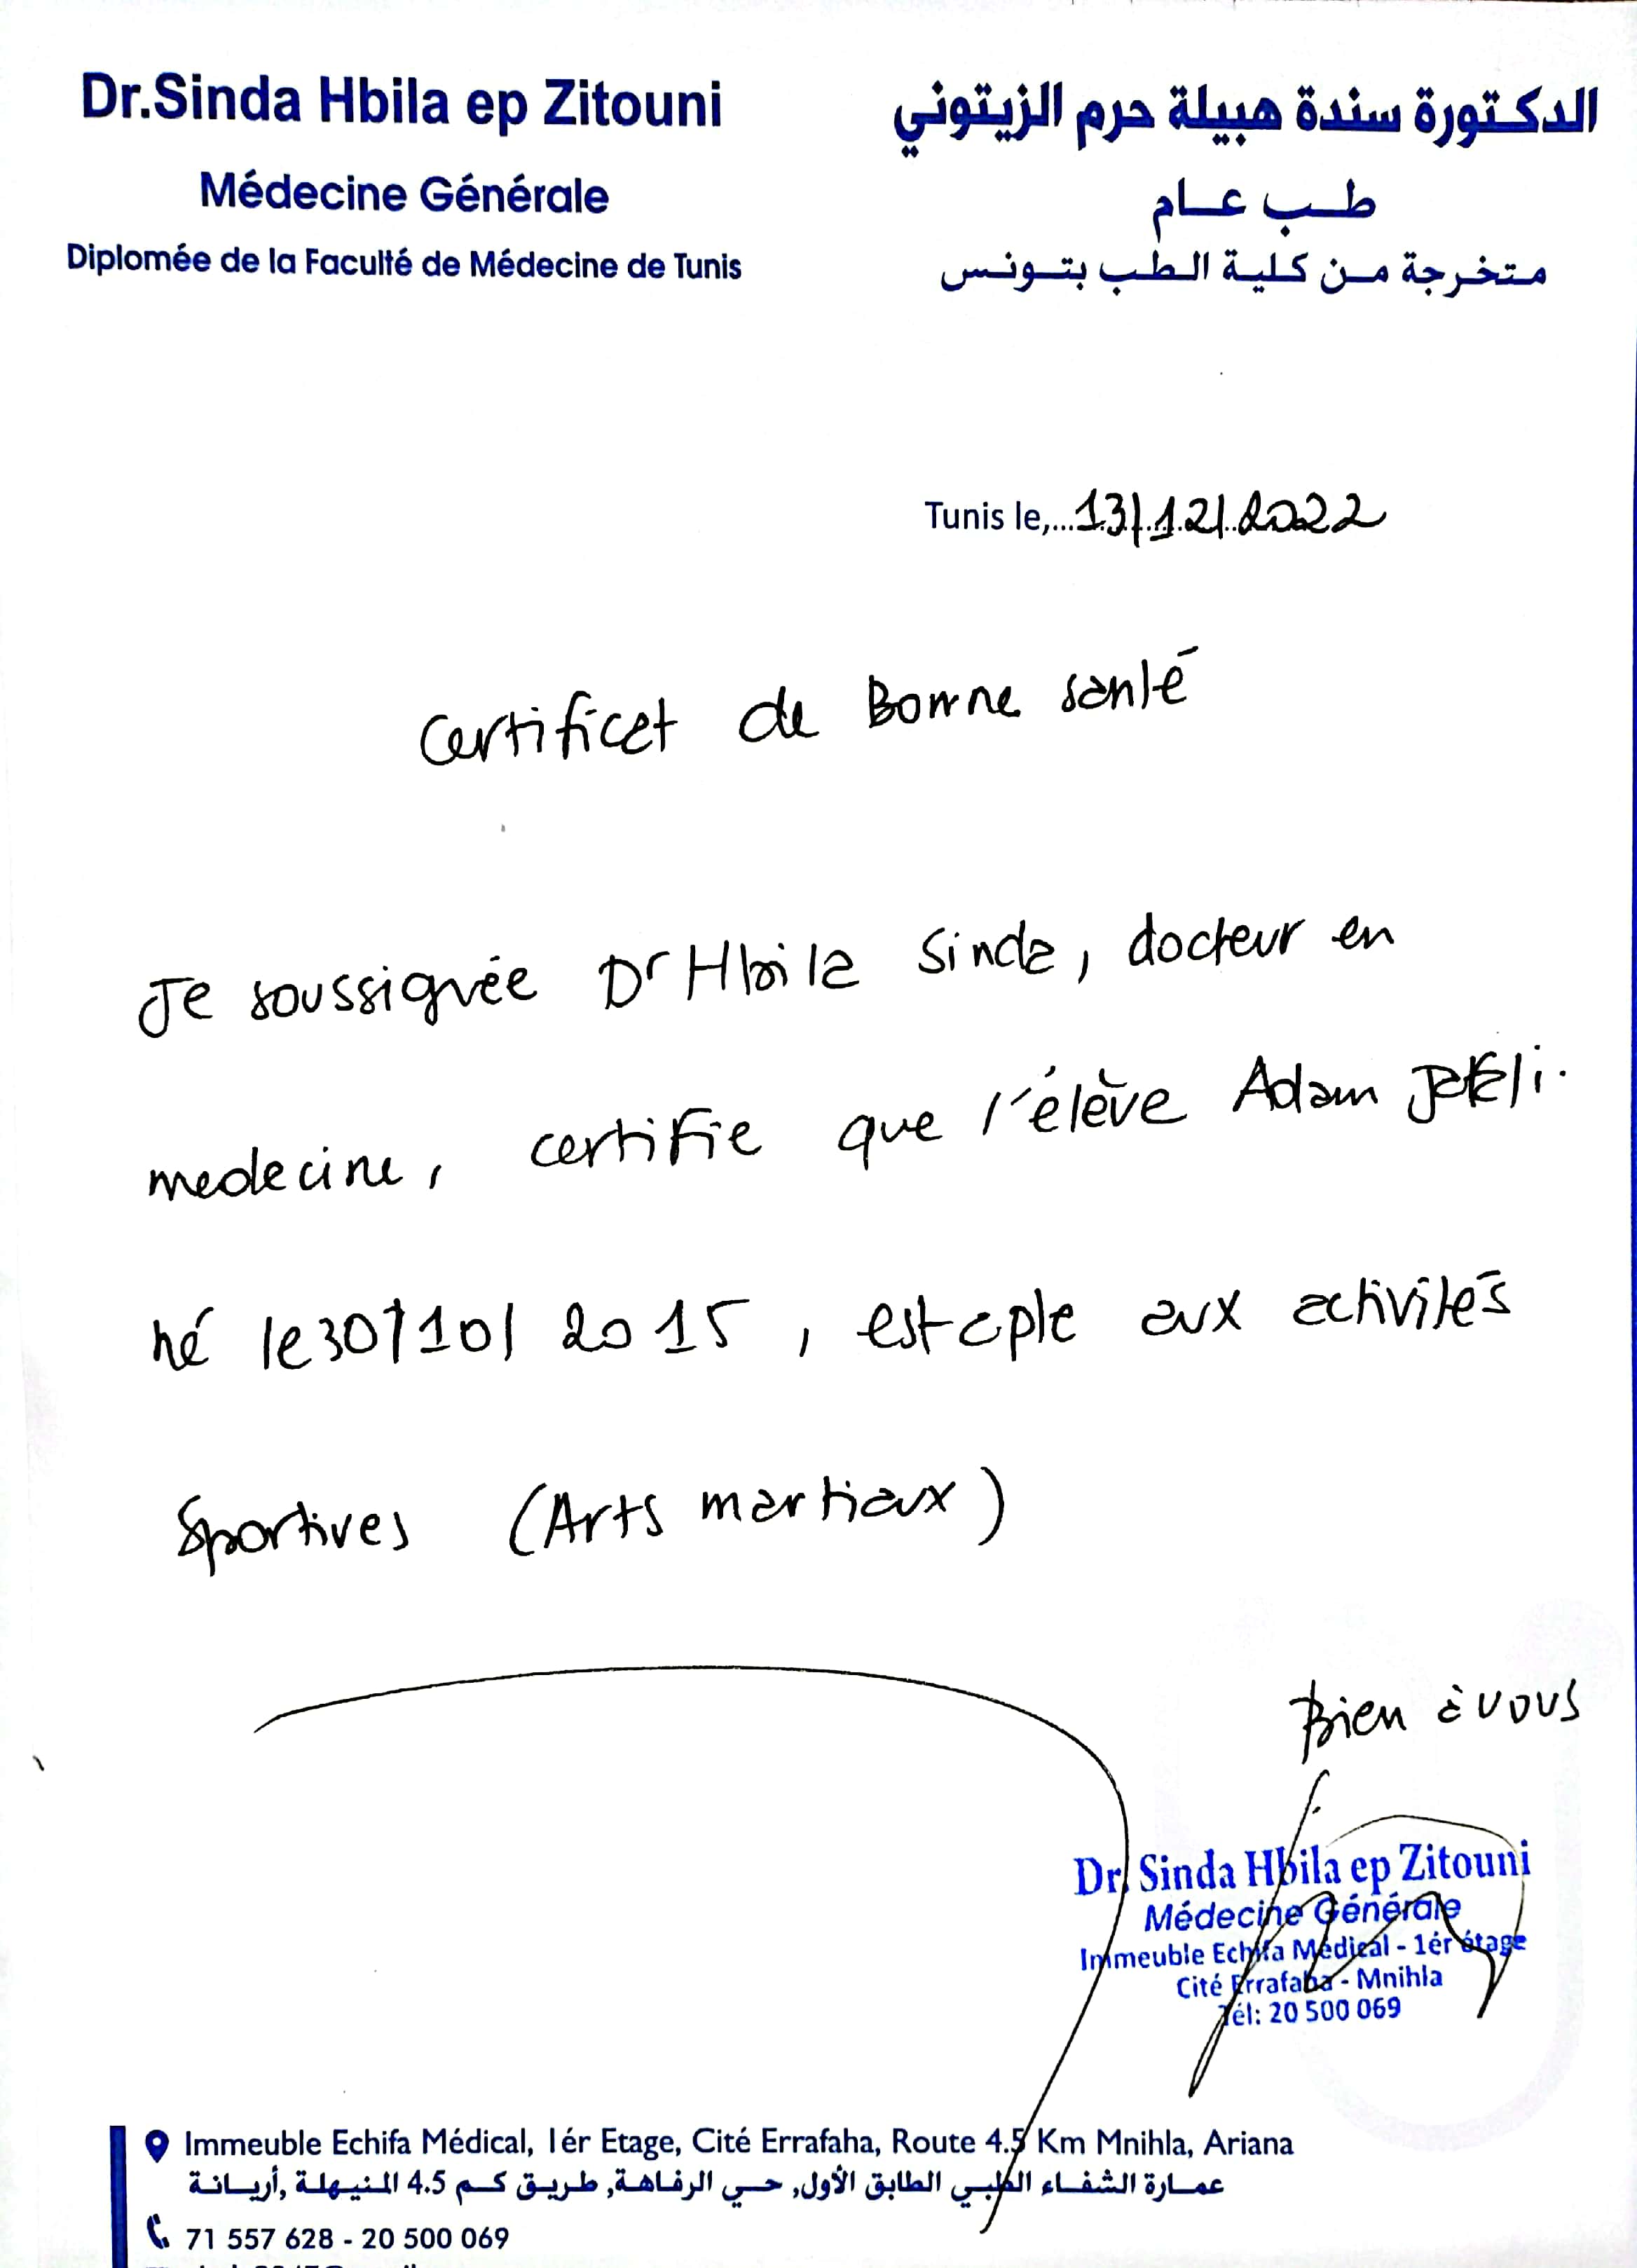 Dr.Sinda Hbila ep Zitouni
Médecine Générale
Diplomée de la Faculté de Médecine de Tunis
الدكتورة سندة هبيلة حرم الزيتوني
طب عام
متخرجة من كلية الطب بتونس
Tunis le,... 13/12/2022
Certificat de Bonne santé
Je soussignée Dr Hbila Sinda, docteur en
medecine, certifie que l'élève Adam
né le 30/10/2015, est apte aux activités
Sportives (Arts martiaux)
Bien à vous
Dr. Sinda Hbila ep Zitouni
Médecine Générale
Immeuble Echifa Médical - 1ér étage
Cité Errafaha - Mnihla
Tél: 20 500 069
Immeuble Echifa Médical, 1ér Etage, Cité Errafaha, Route 4.5 Km Mnihla, Ariana
عمارة الشفاء الطبي الطابق الأول, حي الرفاهة, طريق كم 4.5 المنيهلة ,أريانة
71 557 628 - 20 500 069